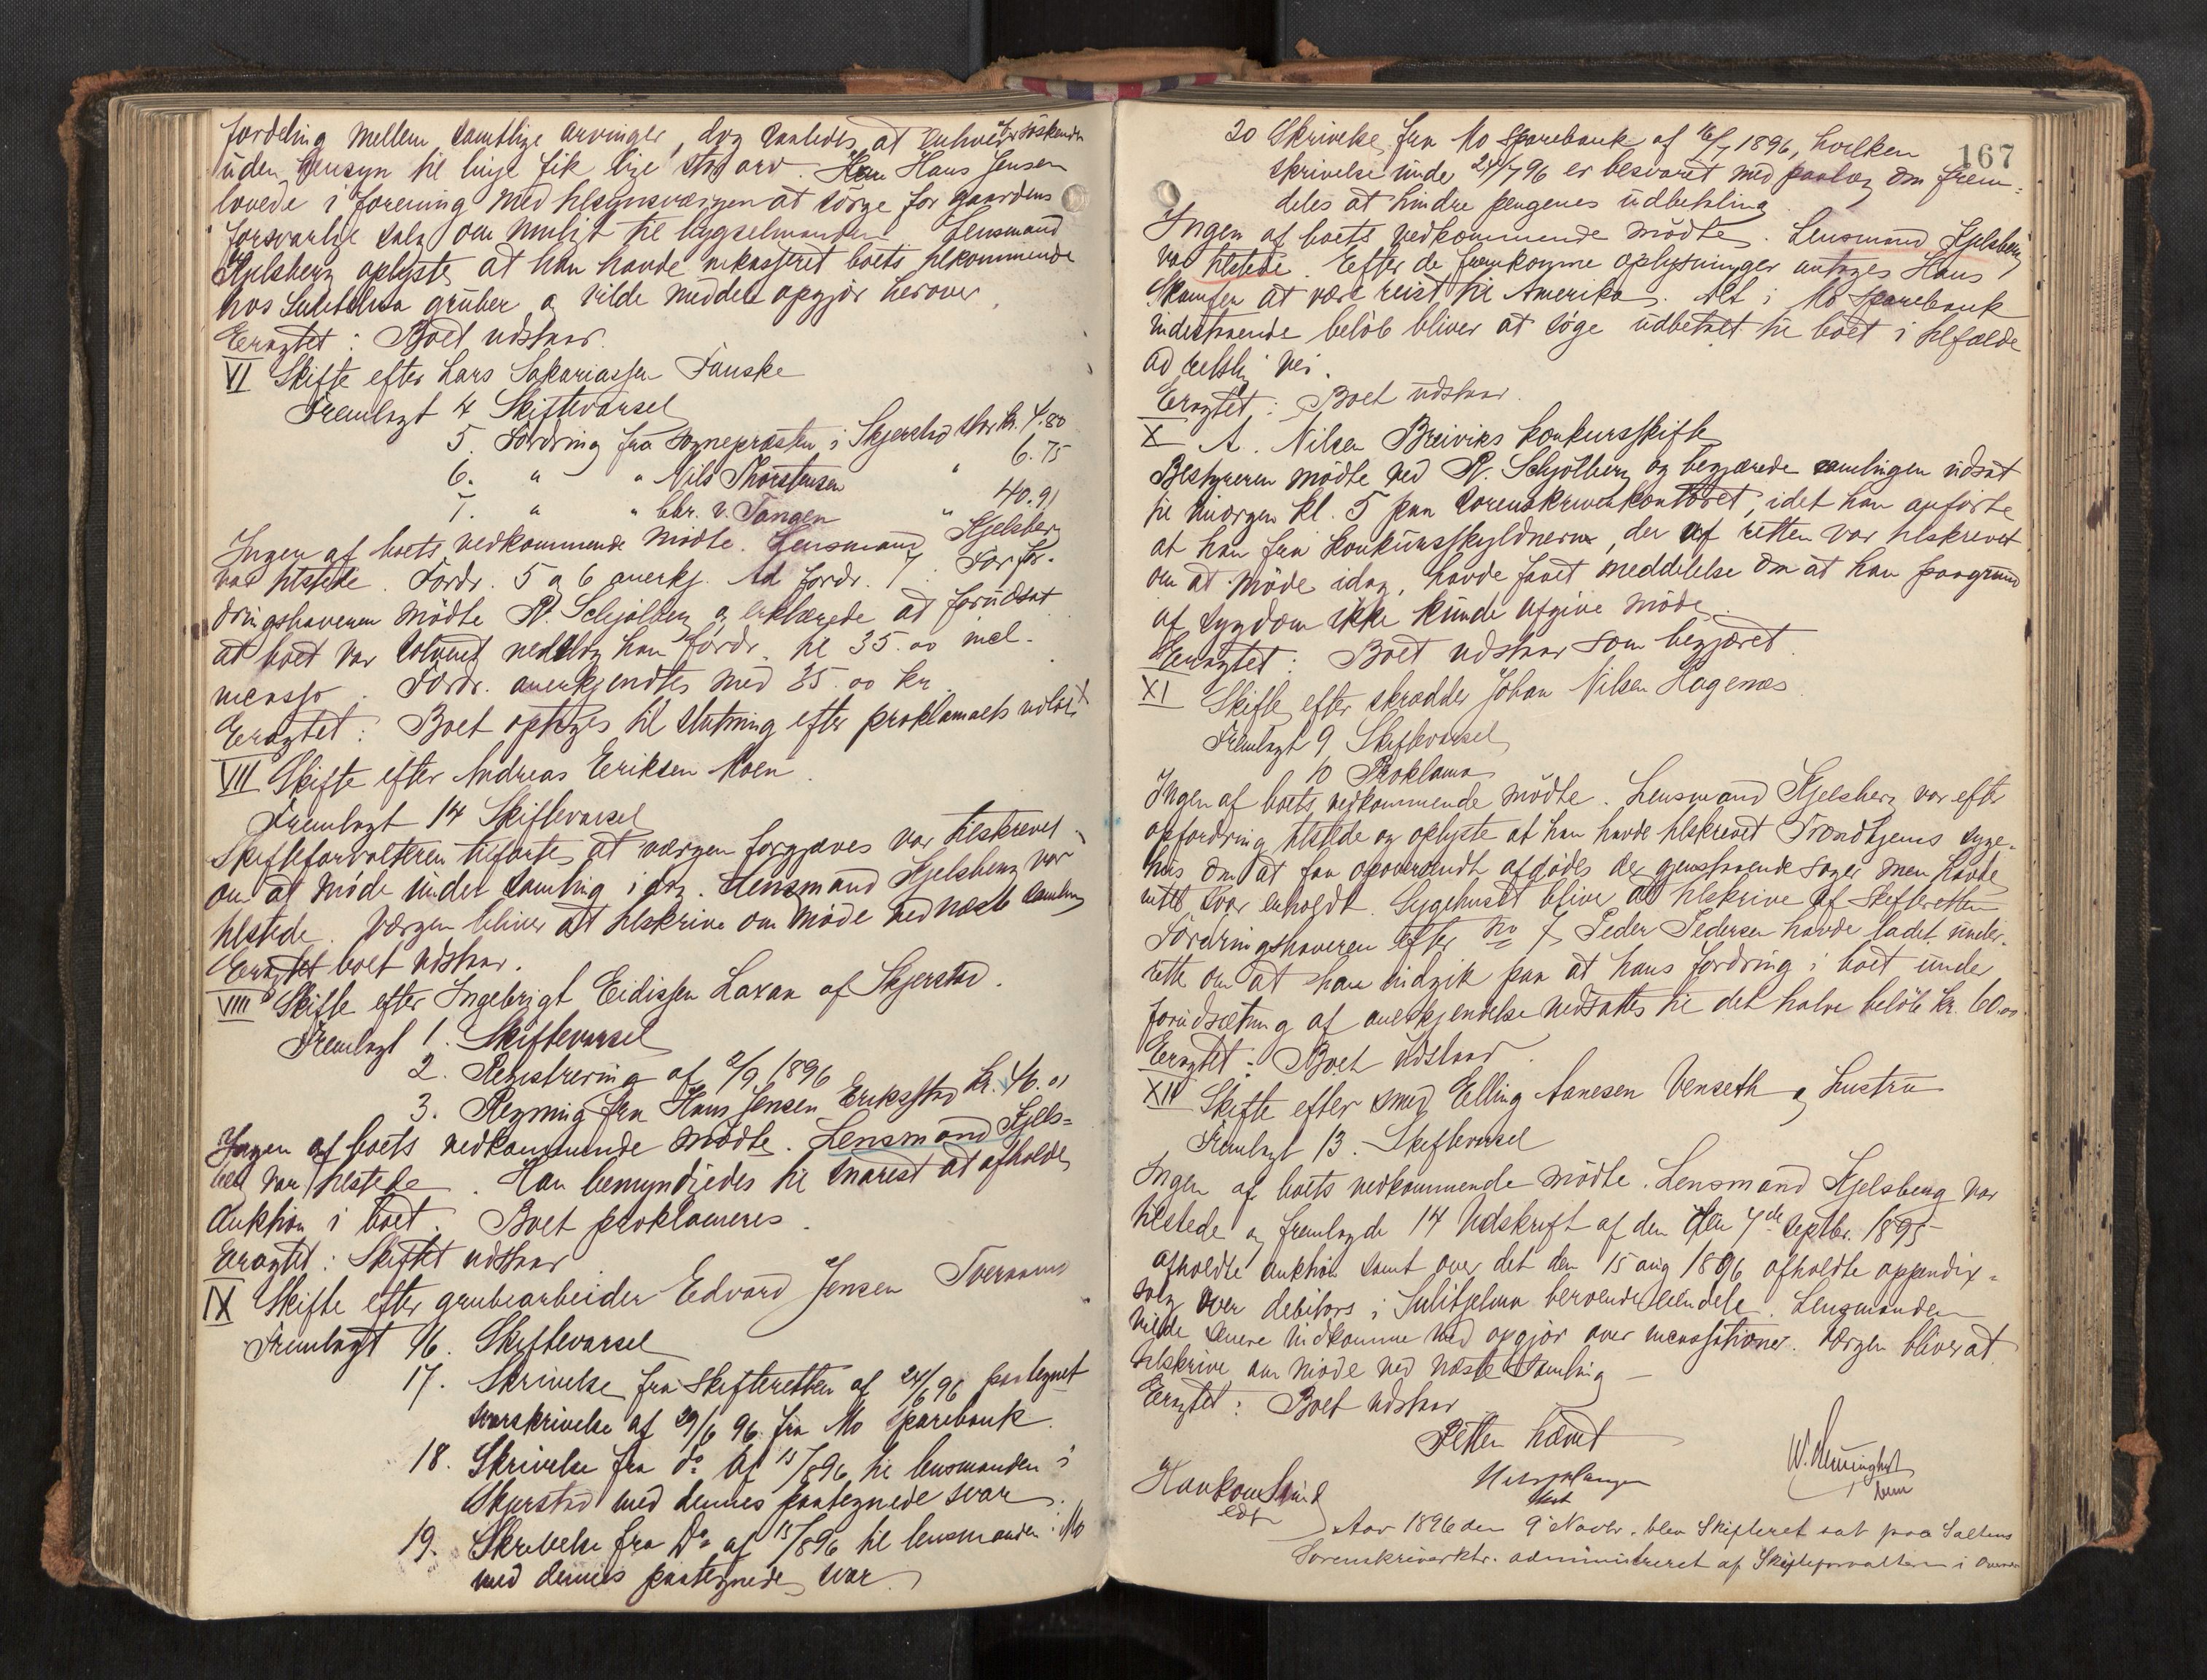 fordeling mellem samtlige arvinger, dog saaledes at enhver af söskende
uden hensyn til linje fik lige stor arv. Hans Jensen
lovede i forening med tilsynsværgen at sörge for gaardens
forsvarlige salg om muligt til bygselmanden. Lensmand
Kjelsberg oplyste at han havde inkasseret boets tilkommende
hos Sulitelma gruber og vilde meddele opgjör herover.
Eragtet: Boet udstaar.
VI Skifte efter Lars Sakariassen Fauske
Fremlagt 4 Skiftevarsel
5. Fordring fra sognepresten i Skjerstad stor kr. 4.80
6. " " Nils Thorstensen " 6.75
7. " " hbr. v. Tangen " 40.91
Ingen af boets vedkommende mödte. Lensmand Kjelsberg
var tilstede. Fordr. 5 og 6 anerkj. Ad fordr. 7. For for-
dringshaveren mödte R. Schjölberg og erklærede at forudsat
at boet var solvent nedslog han fordr. til 35.00 incl.
incasso. Fordr. anerkjendtes med 35.00 kr
Eragtet: Boet optages til slutning efter proklamaets udlöb
VII Skifte efter Andreas Eriksen Moen.
Fremlagt 14 Skiftevarsel
Skifteforvalteren tilförtes at værgen forgjæves var tilskrevet
om at möde under samling idag. Lensmand Kjelsberg var
tilstede. Værgen bliver at tilskrive om möde ved næste samling
Eragtet boet udstaar.
VIII Skifte efter Ingebrigt Eidissen Laxaa af Skjerstad.
Fremlagt 1. Skiftevarsel
2. Registrering af 2/9 1896
3. Regning fra Hans Jensen Eriksstad kr. 46.01
Ingen af boets vedkommende mödte. Lensmand Kjels-
berg var tilstede. Han bemyndiedes til snarest at afholde
auktion i boet. Boet proklameres.
Eragtet: Skiftet udstaar
IX Skifte efter grubearbeider Edvard Jensen Tveraanes
Fremlagt 16. Skiftevarsel
17. Skrivelse fra Skifteretten af 24/6 96 paategnet
svarskrivelse af 29/6 96 fra Mo Sparebank.
18. Skrivelse fra do af 15/7 896 til lensmanden i
Skjerstad med dennes paategnede svar.
19. Skrivelse fra Do af 15/7 896 til lensmanden i Mo
med dennes paategnede svar.
167
20 Skrivelse fra Mo Sparebank af 16/7 1896, hvilken
skrivelse under 24/7 96 er besvaret med paalæg om frem-
deles at hindre pengenes udbetaling
Ingen af boets vedkommende mödte. Lensmand Kjelsberg
var tilstede. Efter de fremkomne oplysninger antages Hans
at være reist til Amerika. Alt i Mo Sparebank
indestaaende belöb bliver at söge udbetalt til boet i tilfælde
ad retslig vei.
Eragtet: Boet udstaar.
X A. Nilsen Breiviks konkursskifte
Bestyreren mödte ved R. Schjölberg og begjærede samlingen udsat
til imorgen kl. 5 paa Sorenskriverkontoret, idet han anförte
at han fra konkursskyldneren, der af retten var tilskrevet
om at möde idag, havde faaet meddelelse om at han paagrund
af sygdom ikke kunde afgive möde.
Eragtet: Boet udstaar som begjæret.
XI Skifte efter skrædder Johan Nilsen Hagenæs.
Fremlagt 9 Skiftevarsel
10 Proklama
Ingen af boets vedkommende mödte. Lensmand Kjelsberg var efter
opfordring tilstede og oplyste at han havde tilskrevet Trondhjems syge-
hus om at faa oversendt afdödes der gjenstaaende sager men havde
intet svar erholdt. Sygehuset bliver at tilskrive af Skifteretten
Fordringshaveren efter No 7 Peder Pedersen havde ladet under-
rette om at han indgik paa at hans fordring i boet under
forudsætning af anerkjendelse nedsattes til det halve belöb kr. 60.00
Eragtet: Boet udstaar.
XII Skifte efter smed Elling Aanesen Venseth og hustru
Fremlagt 13. Skiftevarsel
Ingen af boets vedkommende mödte. Lensmand Kjelsberg var
tilstede og fremlagde 14 Udskrift af den den 7de septbr. 1895
afholdte auktion samt over det den 15 aug 1896 afholdte appendix-
salg over debitors i Sulitjelma beroende eiendele. Lensmanden
vilde senere indkomme med opgjör over incassationer. Værgen bliver at
tilskrive om möde ved næste samling
Eragtet: Boet udstaar
Retten hævet
Haakon
edsv
Aar 1896 den 9 Novbr. blev Skifteret sat paa Saltens
Sorenskriverktr. administreret af Skifteforvalteren i overvær